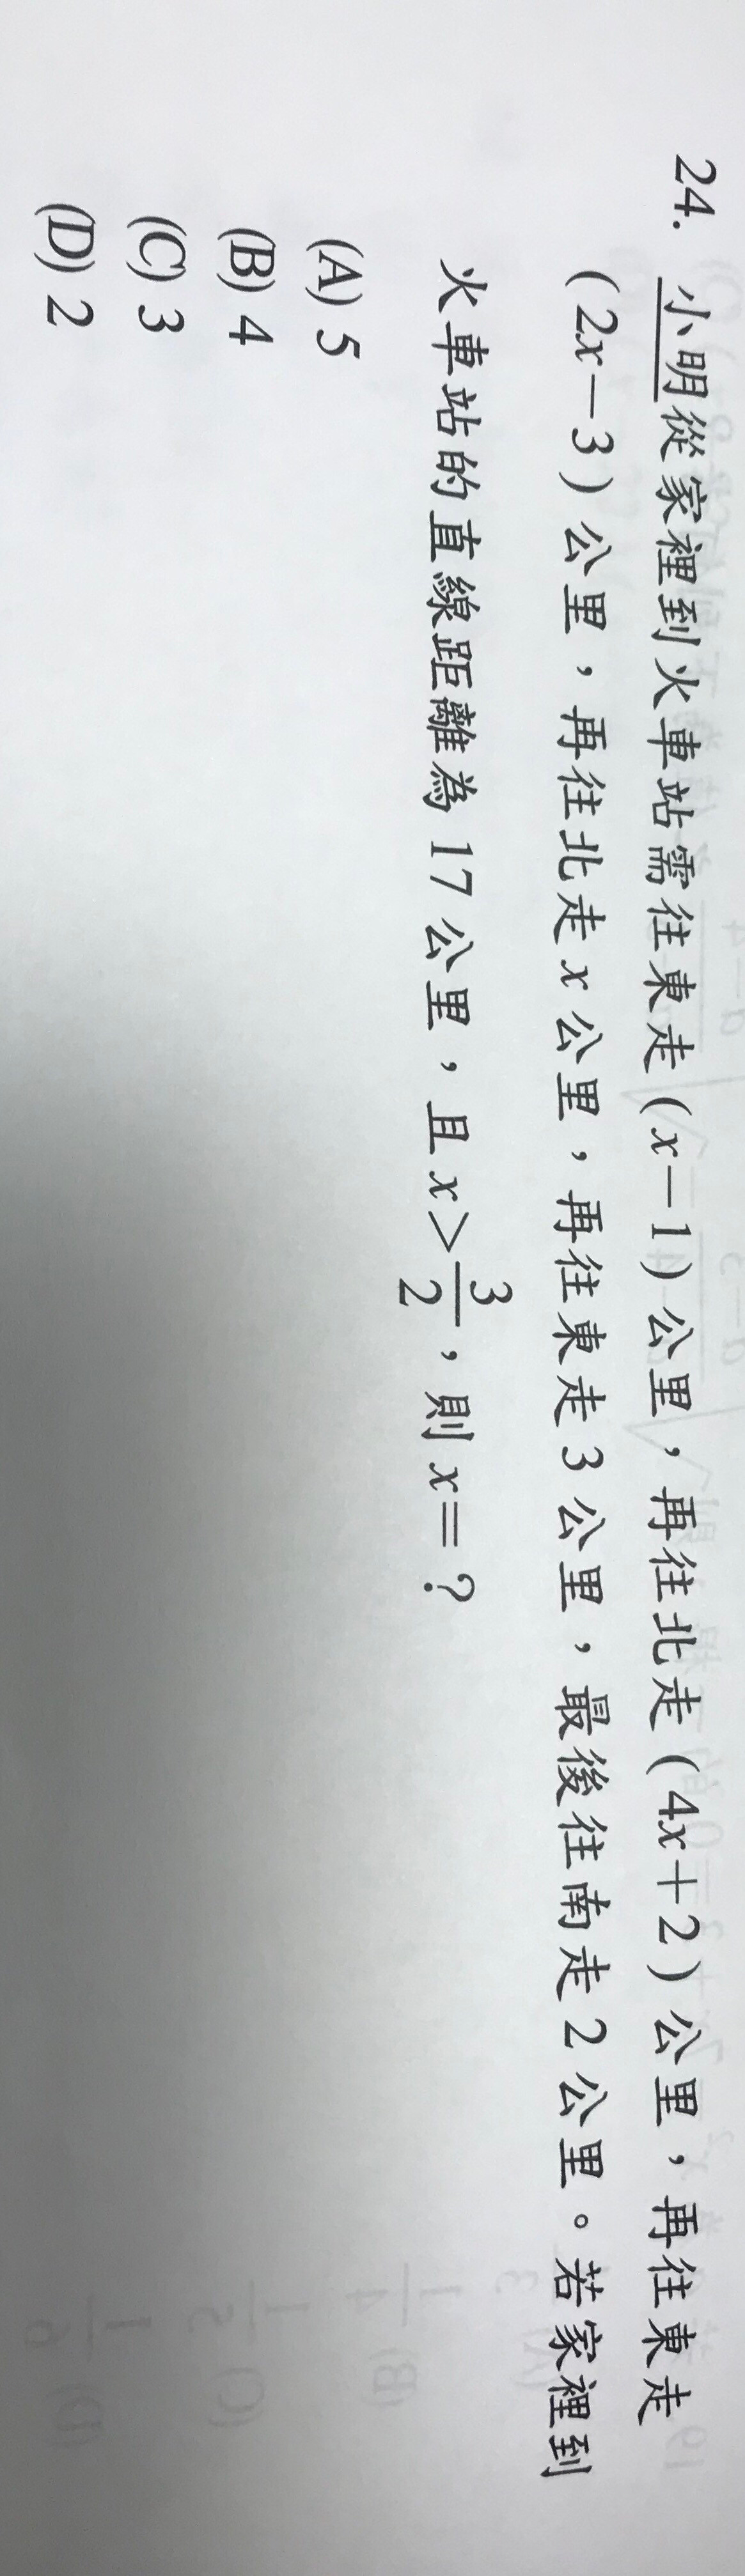 24. 小明從家裡到火車站需往東走(x－1)公里，再往北走(4x＋2)公里，再往東走
(2x－3)公里，再往北走x公里，再往東走3公里，最後往南走2公里。若家裡到
火車站的直線距離為17公里，且x＞3/2，則x＝？
(A) 5
(B) 4
(C) 3
(D) 2